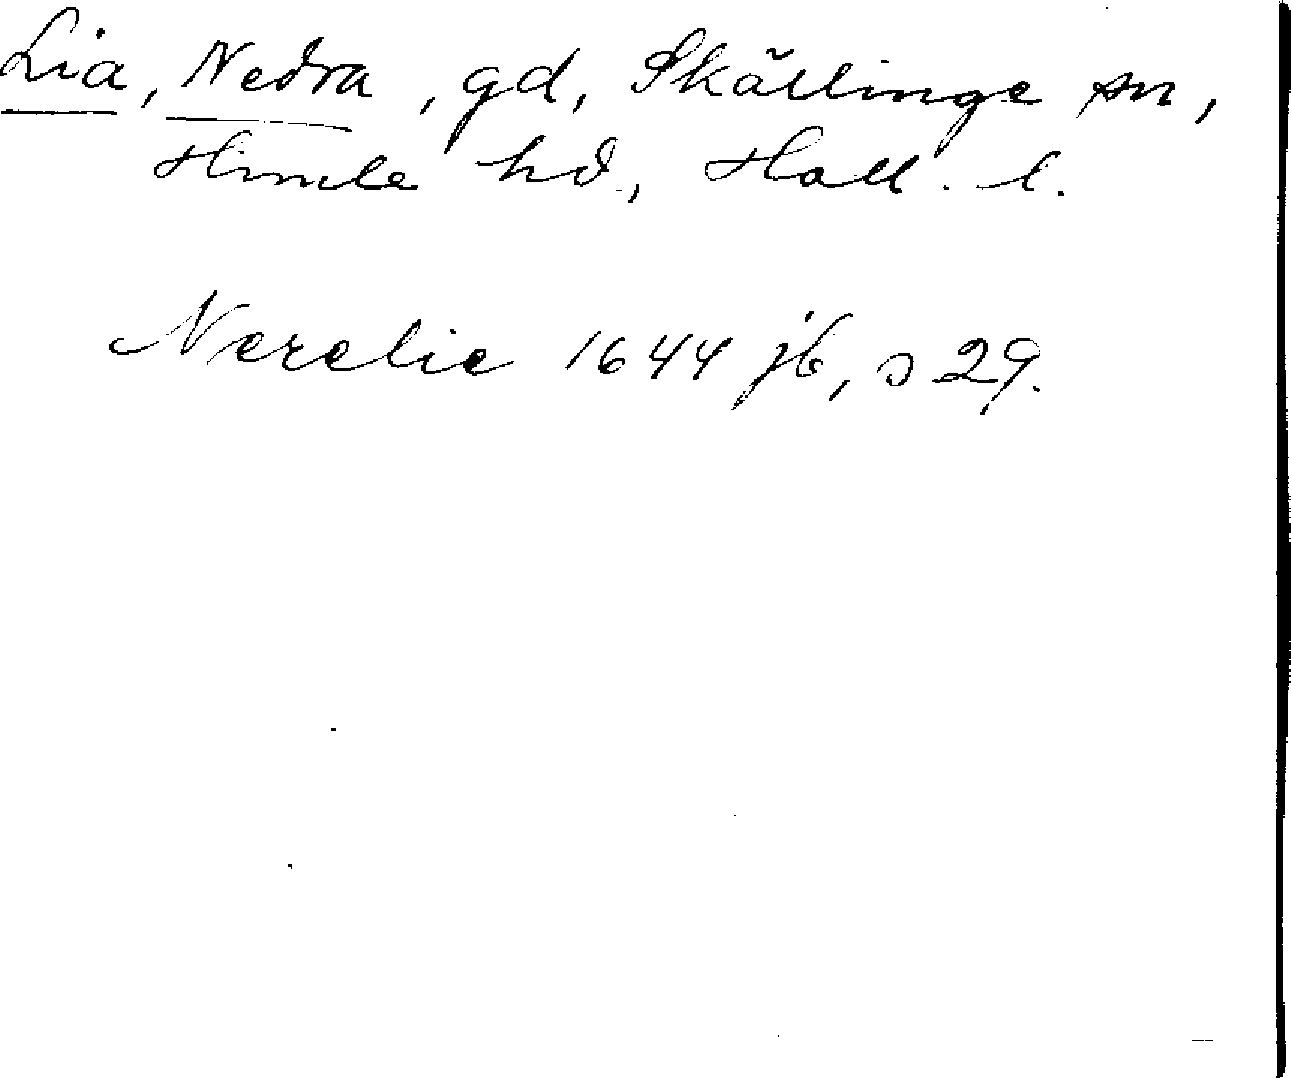 Lia, Nedra, gd, Skällinge sn,
Himle hd, Hall. l.
Nerelie 1644 jb, s 29.